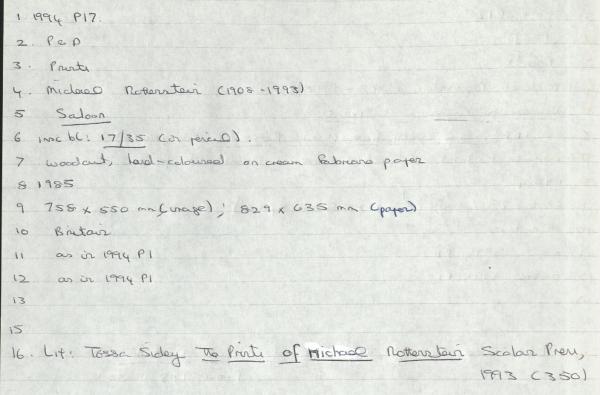 1 1994 P17.
2. P & D
3. Prints
4. Michael Rothenstein (1908-1993)
5 Saloon
6 insc bl: 17/35 (in pencil).
7 woodcut, hand-coloured on cream Fabriano paper
8 1985
9 758 x 550 mm (image); 829 x 635 mm (paper)
10 Britain
11 as in 1994 P1
12 as in 1994 P1
13
15
16. Lit: Tessa Sidey The Prints of Michael Rothenstein Scolar Press,
1993 (350)